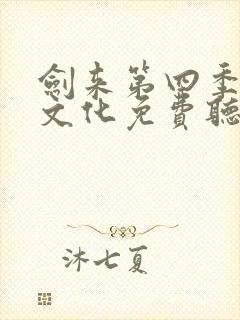 劍来第四季
文化免費聽
沐七夏